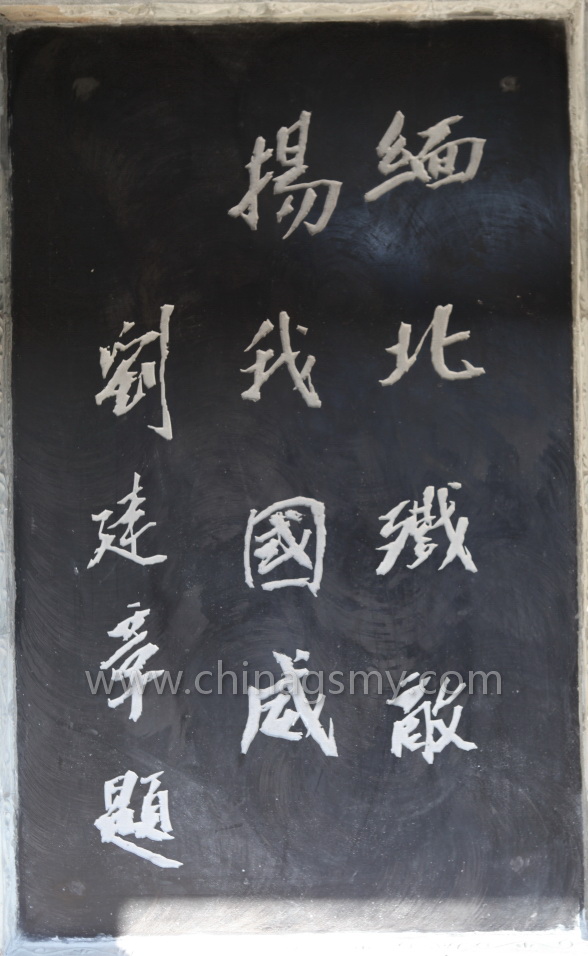 緬北殲敵
揚我國威
劉建章題
www.chinaqsmy.com